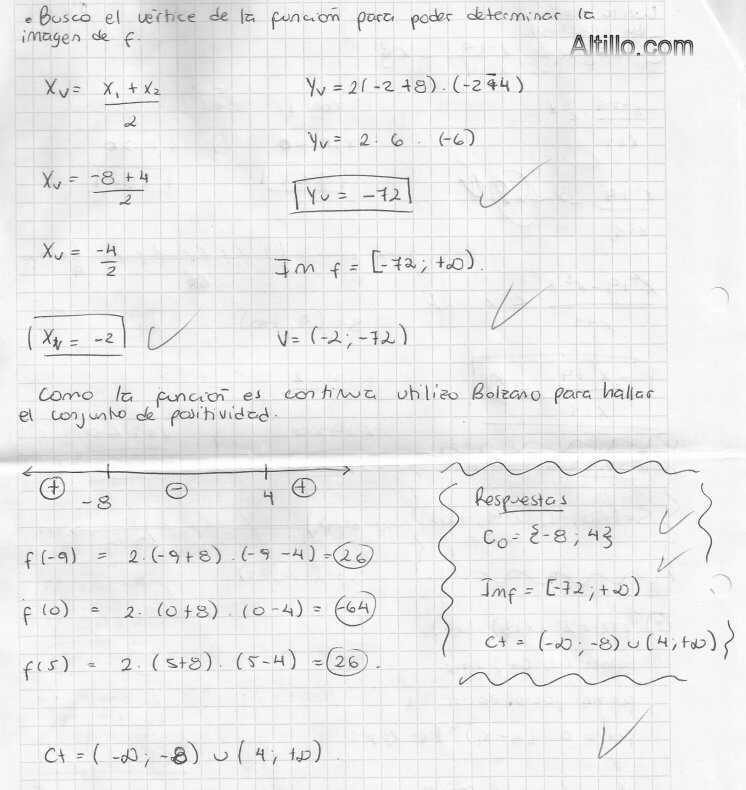 • Busco el vértice de la función para poder determinar la
imagen de f.
Altillo.com
Xv = x₁ + x₂ / 2
Xv = -8 + 4 / 2
Xv = -4 / 2
Xv = -2
Yv = 2(-2+8).(-2-4)
Yv = 2. 6 . (-6)
Yv = -72
Im f = [-72; +∞).
V = (-2; -72)
Como la función es continua utilizo Bolzano para hallar
el conjunto de positividad.
+ -8 - 4 +
f(-9) = 2.(-9+8).(-9-4) = 26
f(0) = 2. (0+8) . (0-4) = -64
f(5) = 2. (5+8). (5-4) = 26.
C+ = (-∞; -8) ∪ (4; +∞)
Respuestas
C₀ = {-8; 4}
Imf = [-72; +∞)
C+ = (-∞; -8) ∪ (4; +∞)